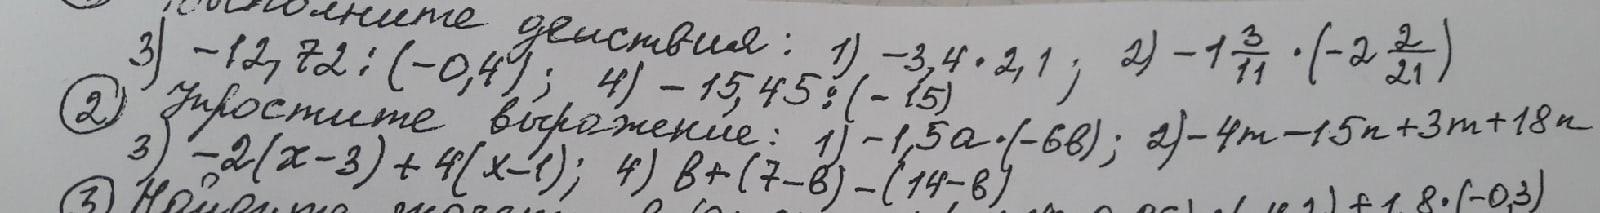 Выполните действия: 1) -3,4 · 2,1; 2) -1 3/11 · (-2 2/21)
3) -12,72 : (-0,4); 4) -15,45 : (-15)
② Упростите выражение: 1) -1,5а · (-6в); 2) -4m - 15n + 3m + 18n
3) -2(x-3) + 4(x-1); 4) в + (7-в) - (14-в)
③ Найдите + 1,8 · (-0,3)